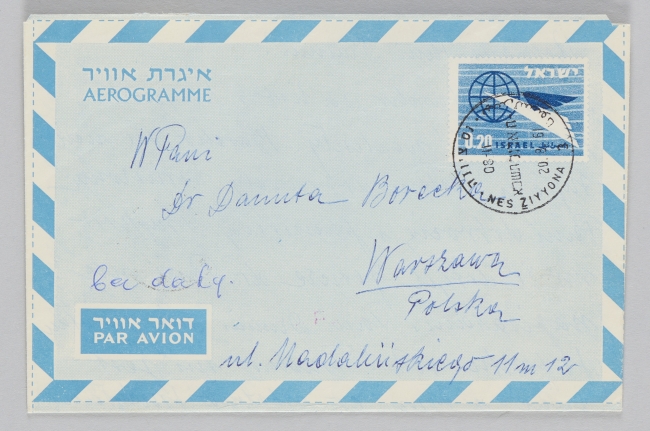 איגרת אוויר
AEROGRAMME
ישראל
0.20 ISRAEL
NES ZIYYONA
W Pani
Dr Danuta Borecka
Warszawa
Polska
דואר אוויר
PAR AVION
ul. Madalińskiego 11 m 12